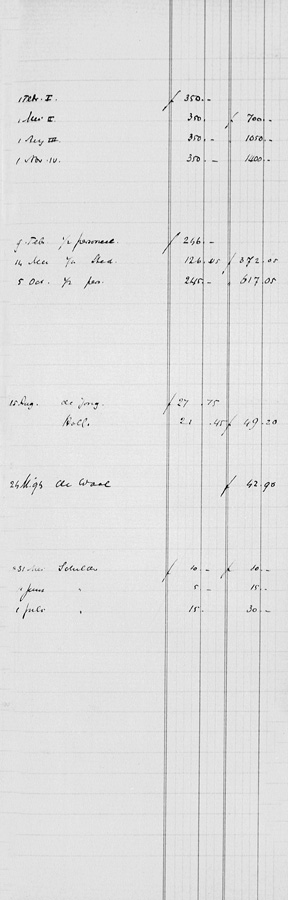 1 Febr. I. f 350.-
1 Mei II. 350.- f 700.-
1 Aug III. 350.- " 1050.-
1 Nov. IV. 350.- 1400.-
9 Feb ½ personeel. f 246.-
14 Mei 126.05 f 372.05
5 Oct. ½ per. 245.- " 617.05
15 Aug. de Jong. f 27.75
Holl. 21.45 f 49.20
24 de Waal f 42.90
31 Schilder f 10.- f 10.-
1 Juni " 5.- 15.-
1 Juli " 15.- 30.-